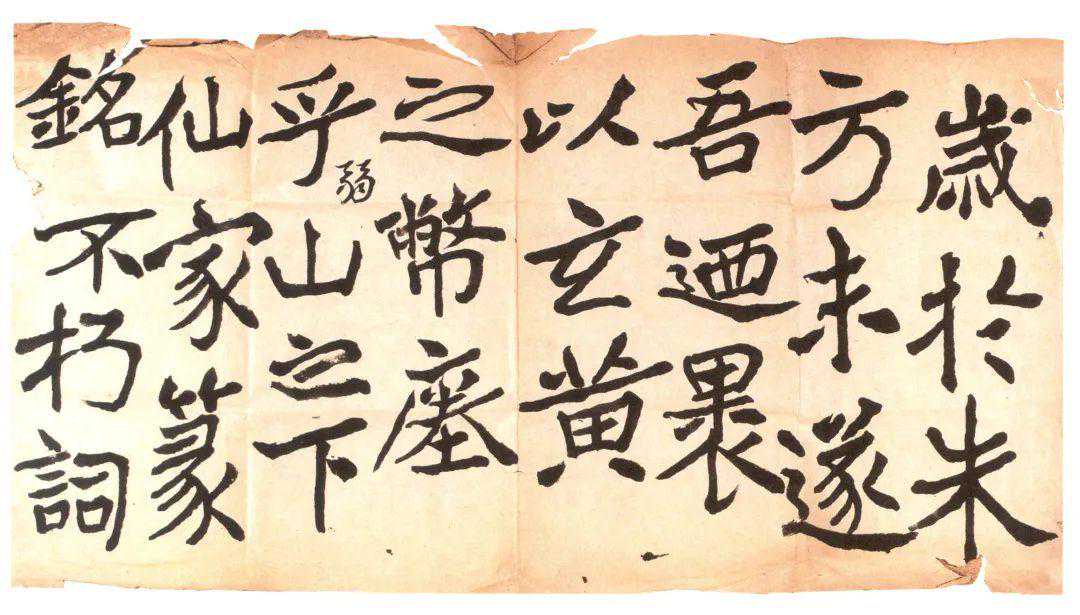 歲於朱
方未遂
吾迺裹
以玄黃
之幣瘞
乎山之下
仙家篆
銘不朽詞